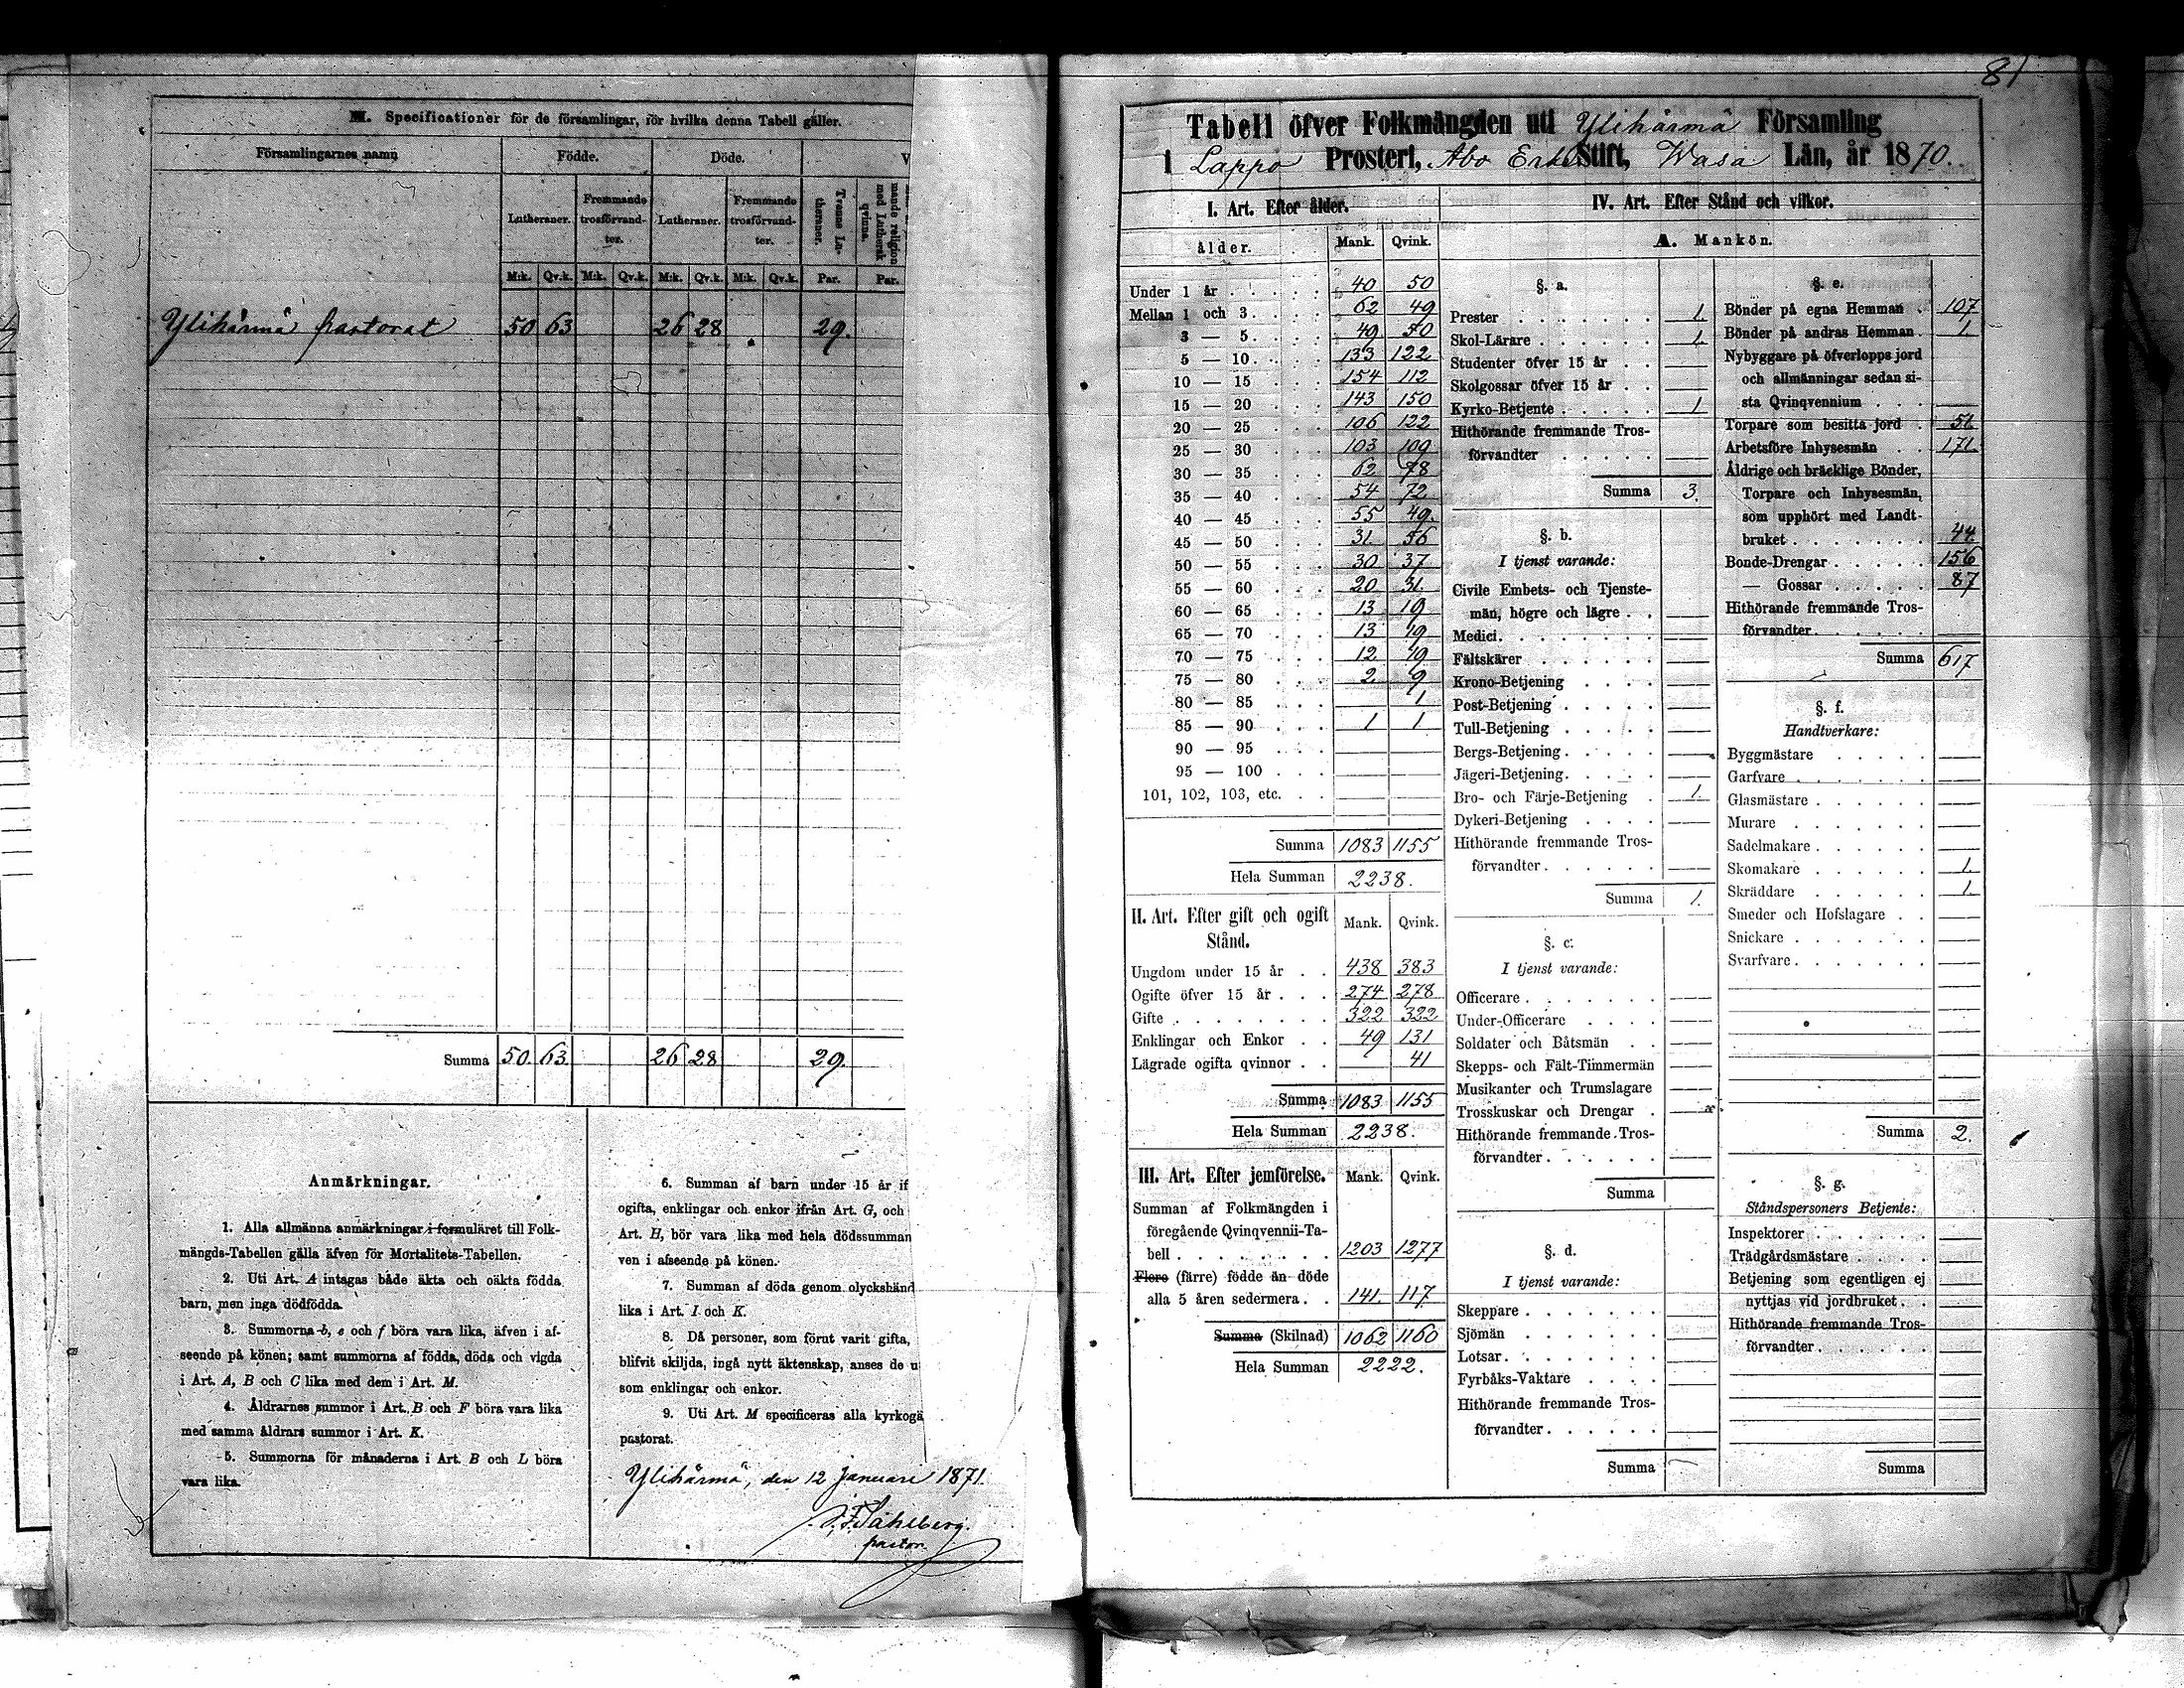 M. Specificationer för de församlingar, för hvilka denna Tabell gäller.
Församlingarnes namn Födde. Döde. V
Lutheraner. Fremmande trosförvandter. Lutheraner. Fremmande trosförvandter. Tvenne Lutheraner. mande religion med Luthersk qvinna.
M:k. Qv.k. M:k. Qv.k. M:k. Qv.k. M:k. Qv.k. Par. Par.
Ylihärmä pastorat 50 63 26 28 29.
Summa 50. 63. 26 28 29.
Anmärkningar.
1. Alla allmänna anmärkningar i formuläret till Folk-
mängds-Tabellen gälla äfven för Mortalitets-Tabellen.
2. Uti Art. A intagas både äkta och oäkta födda
barn, men inga dödfödda.
3. Summorna b, e och f böra vara lika, äfven i af-
seende på könen; samt summorna af födda, döda och vigda
i Art. A, B och C lika med dem i Art. M.
4. Åldrarnes summor i Art. B och F böra vara lika
med samma åldrars summor i Art. K.
5. Summorna för månaderna i Art. B och L böra
vara lika.
6. Summan af barn under 15 år if
ogifta, enklingar och enkor ifrån Art. G, och
Art. H, bör vara lika med hela dödssumman
ven i afseende på könen.
7. Summan af döda genom olyckshänd
lika i Art. I och K.
8. Då personer, som förut varit gifta,
blifvit skiljda, ingå nytt äktenskap, anses de u
som enklingar och enkor.
9. Uti Art. M specificeras alla kyrkogå
pastorat.
Ylihärmä, den 12 Januari 1871.
pastor.
81
Tabell öfver Folkmängden uti Ylihärmä Församling
i Lappo Prosteri, Abo Erke Stift, Wasa Län, år 1870.
I. Art. Efter ålder.
ålder. Mank. Qvink.
Under 1 år 40 50
Mellan 1 och 3 62 49
3 — 5 49 50
5 — 10 133 122
10 — 15 154 112
15 — 20 143 150
20 — 25 106 122
25 — 30 103 109
30 — 35 62 78
35 — 40 54 72
40 — 45 55 49.
45 — 50 31. 56
50 — 55 30 37
55 — 60 20 31.
60 — 65 13 19
65 — 70 13 19
70 — 75 12 19
75 — 80 2 9
80 — 85 1
85 — 90 1 1
90 — 95
95 — 100
101, 102, 103, etc.
Summa 1083 1155
Hela Summan 2238.
II. Art. Efter gift och ogift Stånd. Mank. Qvink.
Ungdom under 15 år 438 383
Ogifte öfver 15 år 274 278
Gifte 322 322
Enklingar och Enkor 49 131
Lägrade ogifta qvinnor 41
Summa 1083 1155
Hela Summan 2238.
III. Art. Efter jemförelse. Mank. Qvink.
Summan af Folkmängden i
föregående Qvinqvennii-Ta-
bell 1203 1277
Flere (färre) födde än döde
alla 5 åren sedermera 141. 117
Summa (Skilnad) 1062 1160
Hela Summan 2222.
IV. Art. Efter Stånd och vilkor.
A. Mankön.
§. a.
Prester 1.
Skol-Lärare 1.
Studenter öfver 15 år
Skolgossar öfver 15 år
Kyrko-Betjente 1
Hithörande fremmande Tros-
förvandter
Summa 3.
§. b.
I tjenst varande:
Civile Embets- och Tjenste-
män, högre och lägre
Medici
Fältskärer
Krono-Betjening
Post-Betjening
Tull-Betjening
Bergs-Betjening
Jägeri-Betjening
Bro- och Färje-Betjening 1.
Dykeri-Betjening
Hithörande fremmande Tros-
förvandter
Summa 1.
§. c.
I tjenst varande:
Officerare
Under-Officerare
Soldater och Båtsmän
Skepps- och Fält-Timmermän
Musikanter och Trumslagare
Trosskuskar och Drengar
Hithörande fremmande Tros-
förvandter
Summa
§. d.
I tjenst varande:
Skeppare
Sjömän
Lotsar
Fyrbåks-Vaktare
Hithörande fremmande Tros-
förvandter
Summa
§. e.
Bönder på egna Hemman 107
Bönder på andras Hemman 1.
Nybyggare på öfverlopps jord
och allmänningar sedan si-
sta Qvinqvennium
Torpare som besitta jord 51.
Arbetsföre Inhysesmän 171.
Åldrige och bräcklige Bönder,
Torpare och Inhysesmän,
som upphört med Landt-
bruket 44
Bonde-Drengar 156
— Gossar 87
Hithörande fremmande Tros-
förvandter
Summa 617
§. f.
Handtverkare:
Byggmästare
Garfvare
Glasmästare
Murare
Sadelmakare
Skomakare 1.
Skräddare 1.
Smeder och Hofslagare
Snickare
Svarfvare
Summa 2.
§. g.
Ståndspersoners Betjente:
Inspektorer
Trädgårdsmästare
Betjening som egentligen ej
nyttjas vid jordbruket
Hithörande fremmande Tros-
förvandter
Summa